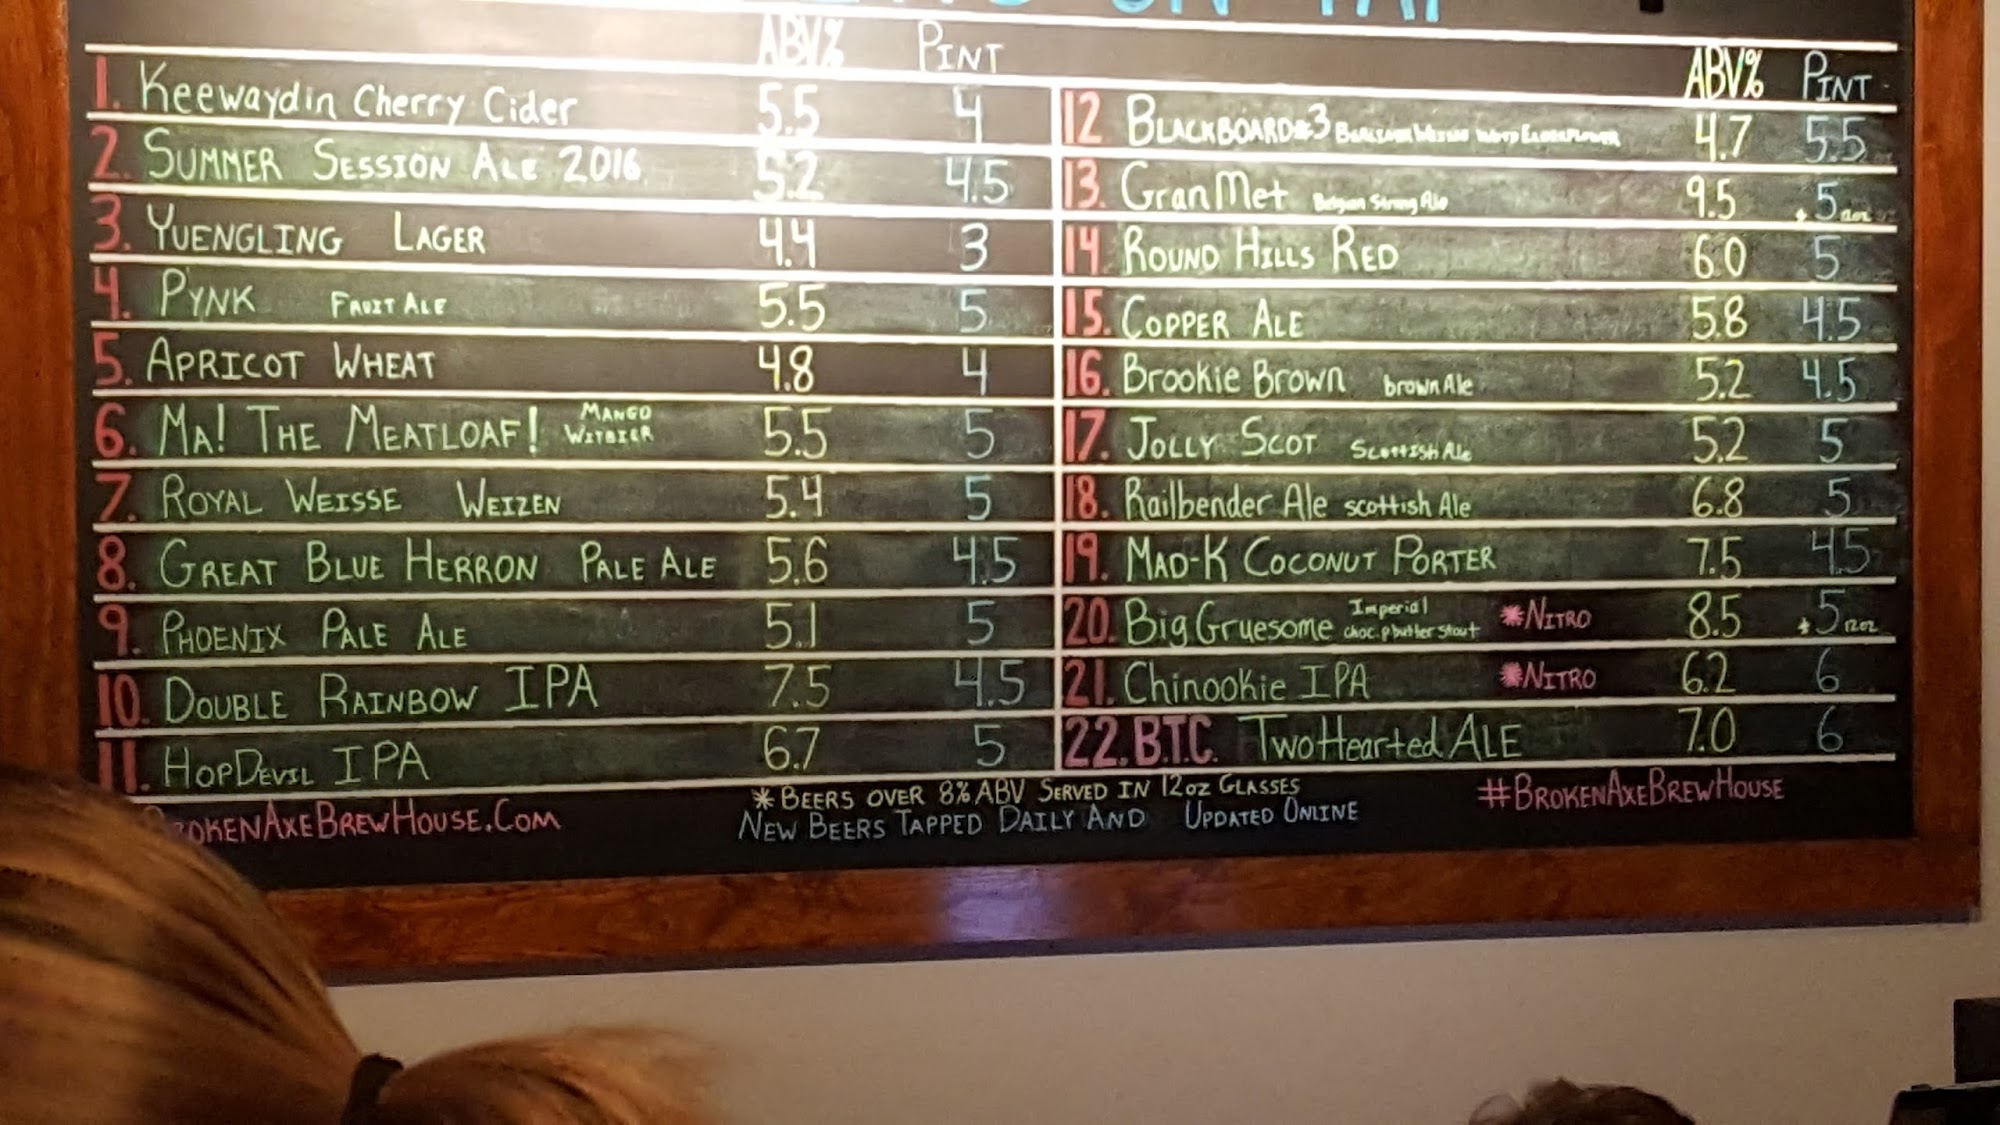 ON TAP
ABV% PINT
1. Keewaydin Cherry Cider 5.5 4
2. SUMMER SESSION ALE 2016 5.2 4.5
3. YUENGLING LAGER 4.4 3
4. PYNK FRUIT ALE 5.5 5
5. APRICOT WHEAT 4.8 4
6. MA! THE MEATLOAF! MANGO WITBIER 5.5 5
7. ROYAL WEISSE WEIZEN 5.4 5
8. GREAT BLUE HERRON PALE ALE 5.6 4.5
9. PHOENIX PALE ALE 5.1 5
10. DOUBLE RAINBOW IPA 7.5 4.5
11. HOPDEVIL IPA 6.7 5
ABV% PINT
12 BLACKBOARD #3 BERLINER WEISSE WITH ELDERFLOWER 4.7 5.5
13. GranMet Belgian Strong Ale 9.5 * 5 12oz
14. ROUND HILLS RED 6.0 5
15. COPPER ALE 5.8 4.5
16. Brookie Brown brown Ale 5.2 4.5
17. JOLLY SCOT Scottish Ale 5.2 5
18. Railbender Ale scottish Ale 6.8 5
19. MAD-K COCONUT PORTER 7.5 4.5
20. Big Gruesome Imperial choc. p butter stout *NITRO 8.5 * 5 12oz
21. Chinookie IPA *NITRO 6.2 6
22. B.T.C. TwoHearted ALE 7.0 6
BROKENAXEBREWHOUSE.COM
* BEERS OVER 8% ABV SERVED IN 12OZ GLASSES
NEW BEERS TAPPED DAILY AND UPDATED ONLINE
#BROKENAXEBREWHOUSE